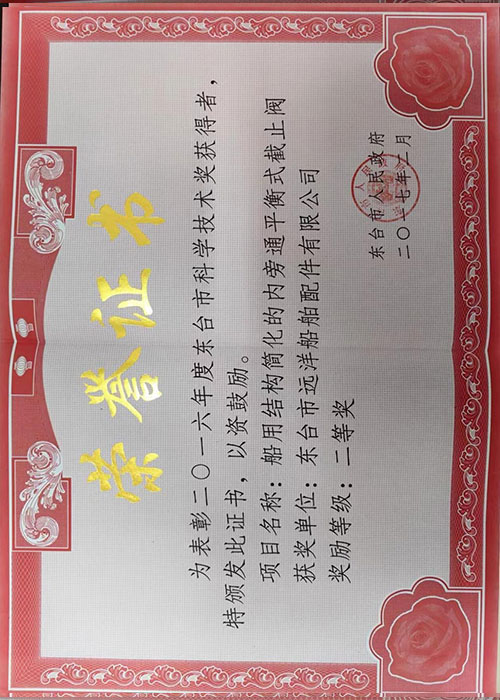 荣誉证书
为表彰二〇一六年度东台市科学技术奖获得者，
特颁发此证书，以资鼓励。
项目名称：船用结构简化的内旁通平衡式截止阀
获奖单位：东台市远洋船舶配件有限公司
奖励等级：二等奖
东台市人民政府
二〇一七年一月